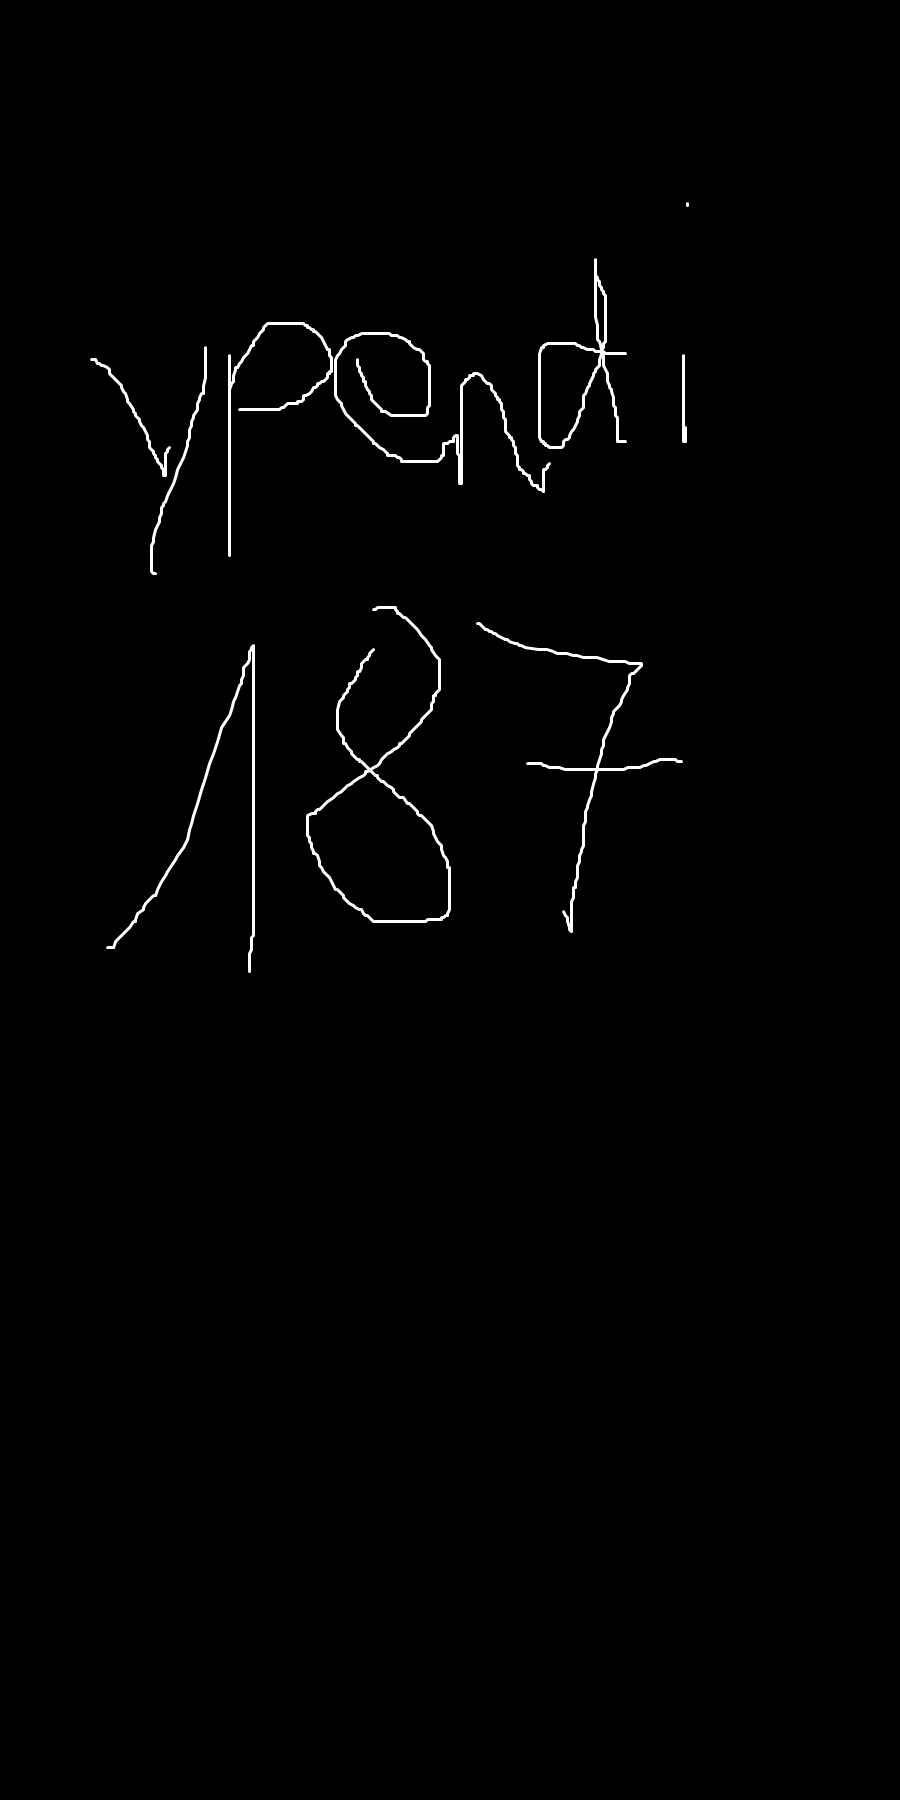 ypendi
187